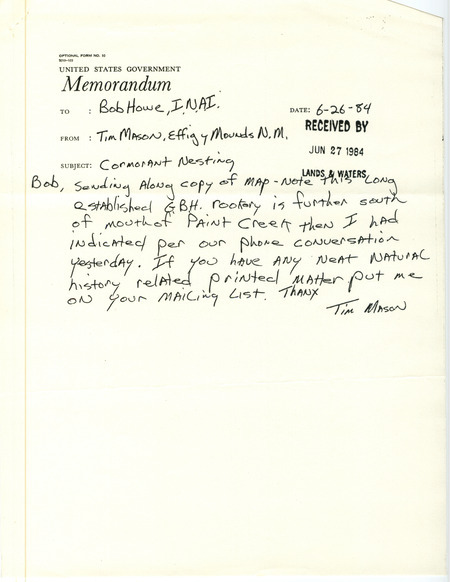 OPTIONAL FORM NO. 10
5010-103
UNITED STATES GOVERNMENT
Memorandum
TO : Bob Howe, I.N.A.I.
DATE: 6-26-84
RECEIVED BY
FROM : Tim Mason, Effigy Mounds N.M.
JUN 27 1984
SUBJECT: Cormorant Nesting
LANDS & WATERS
Bob, Sending Along copy of map-Note This Long
established G.B.H. rookery is further south
of mouth of Paint Creek then I had
indicated per our phone conversation
yesterday. If you have any neat natural
history related printed matter put me
on your mailing list. Thanx
Tim Mason